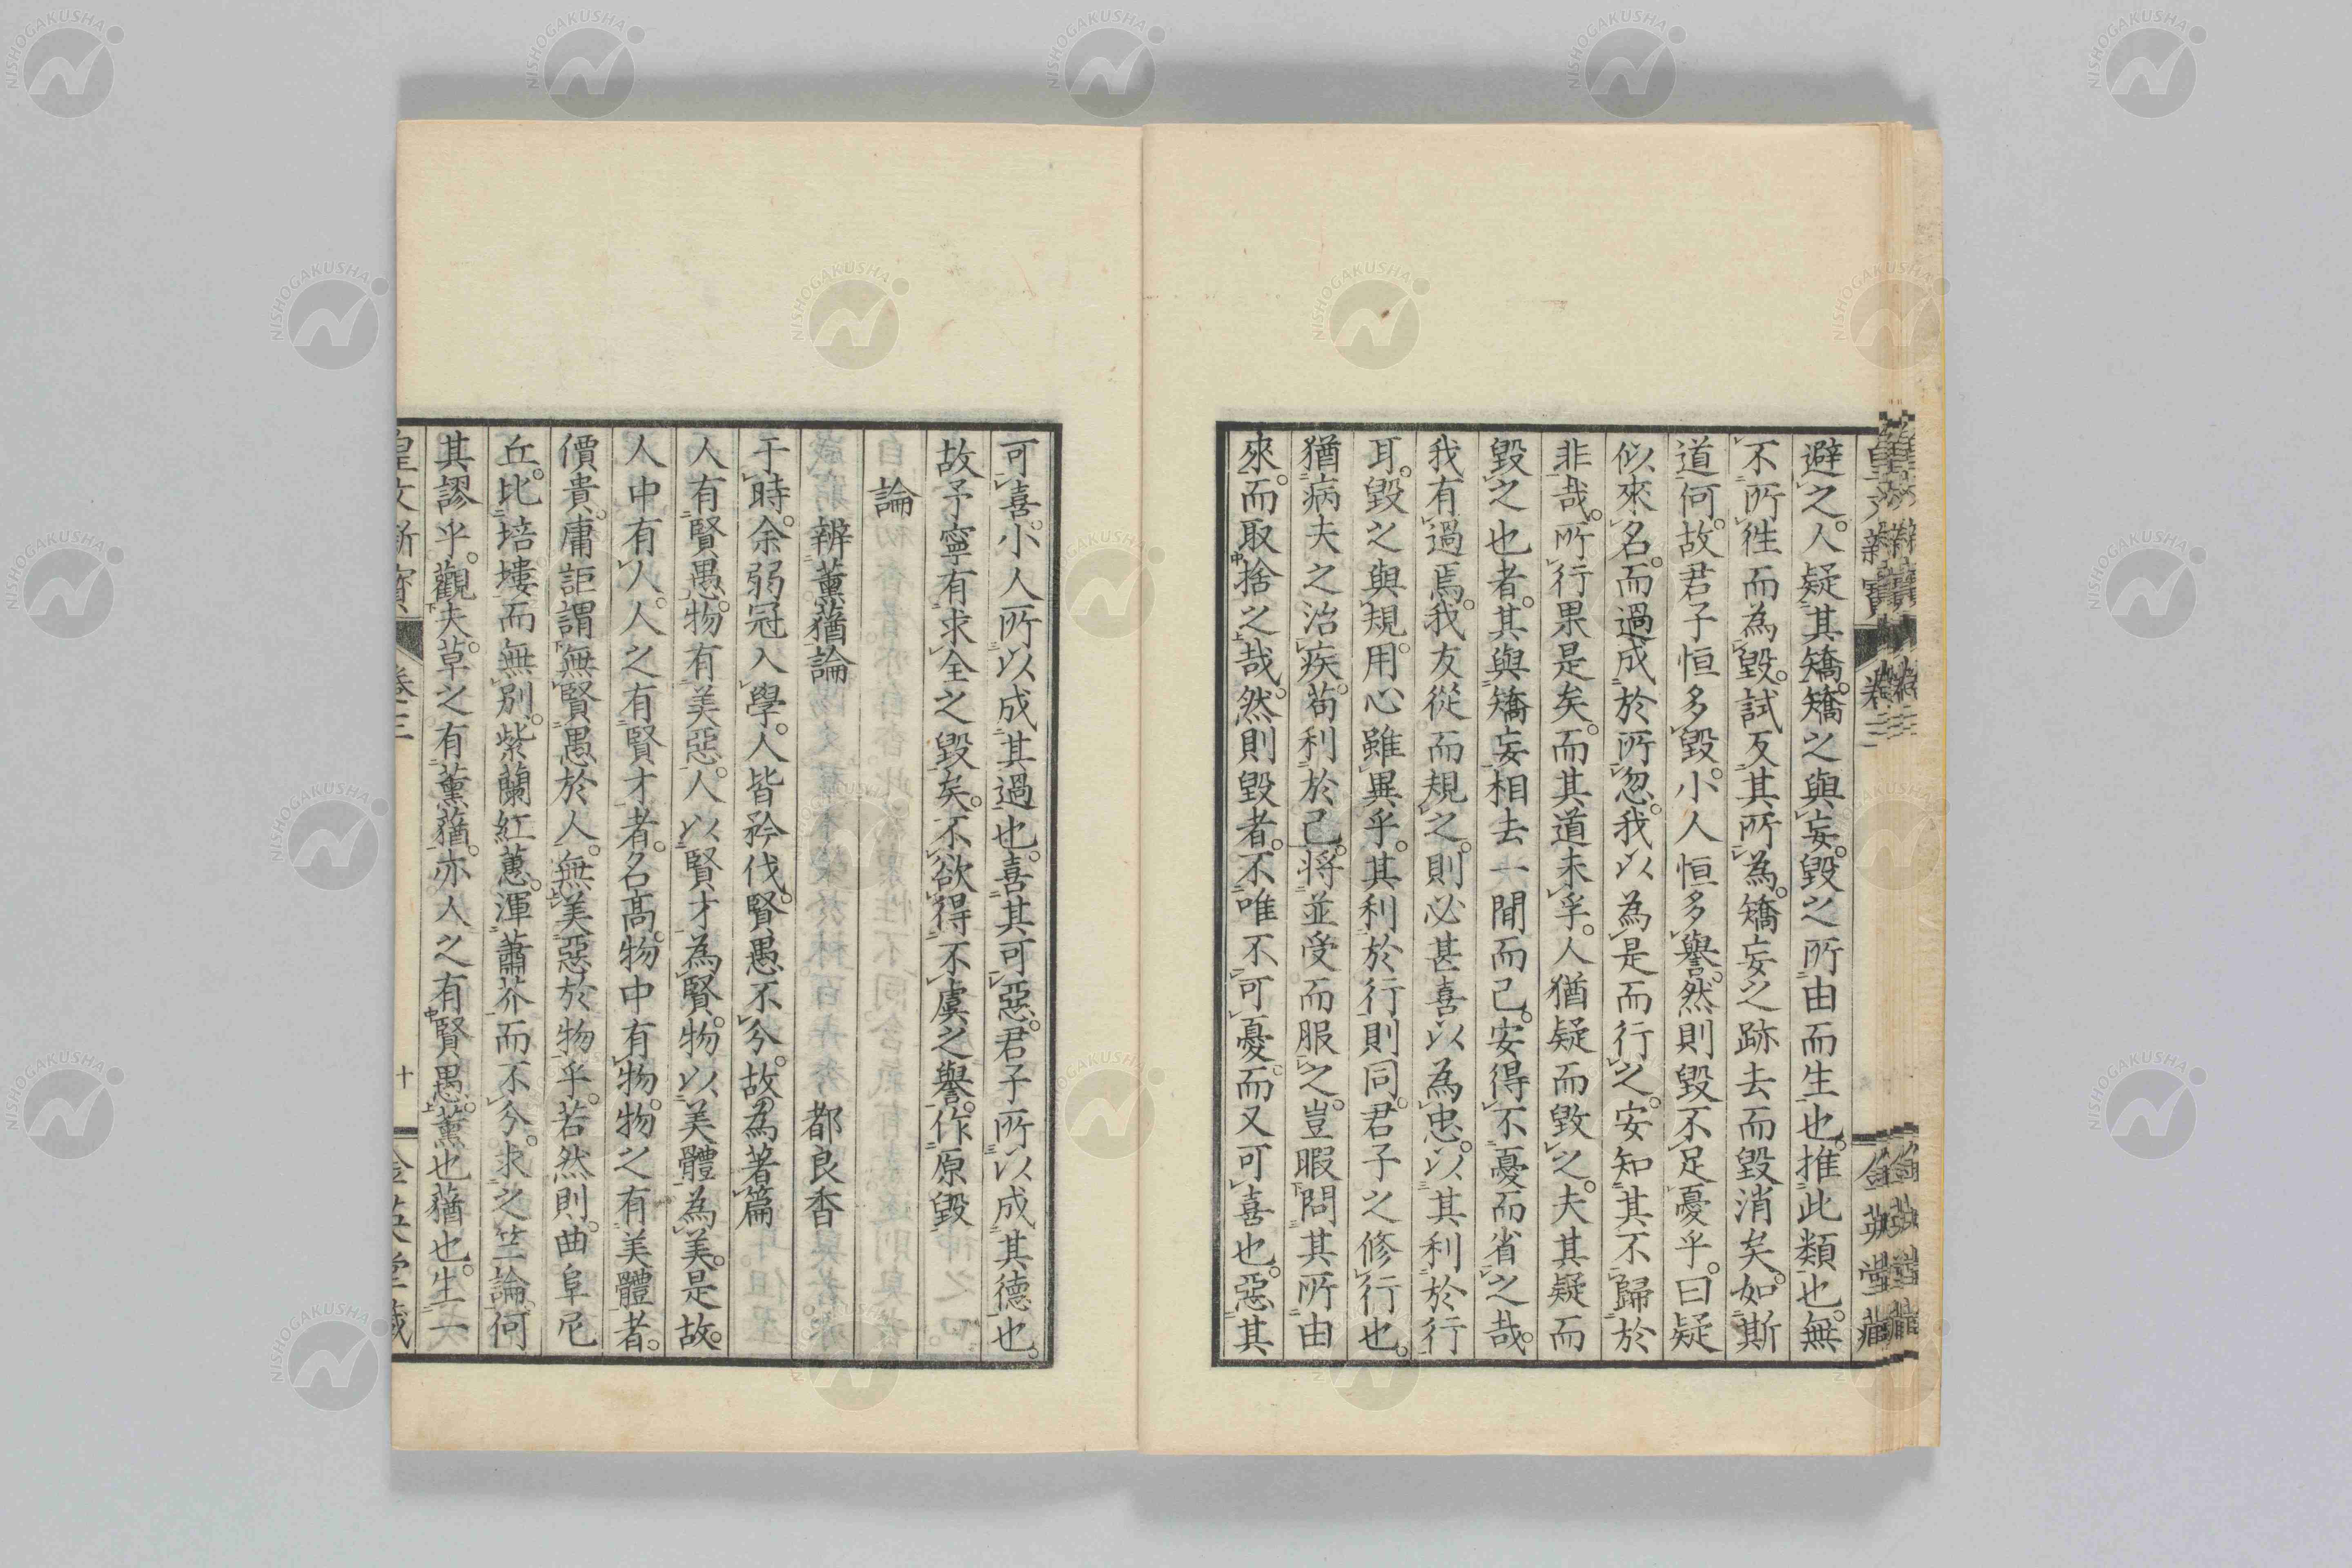 避之。人疑其矯。矯之與妄。毀之所由而生也。推此類也。無
不所徃而為毀。試反其所為。矯妄之跡去而毀消矣。如斯
道何。故君子恒多毀。小人恒多譽。然則毀不足憂乎。曰疑
似來名。而過成於所忽。我以為是而行之。安知其不歸於
非哉。所行果是矣。而其道未孚。人猶疑而毀之。夫其疑而
毀之也者。其與矯妄相去一間而已。安得不憂而省之哉。
我有過焉。我友從而規之。則必甚喜以為忠。以其利於行
耳。毀之與規。用心雖異乎。其利於行則同。君子之修行也。
猶病夫之治疾。苟利於己。將並受而服之。豈暇問其所由
來。而取捨之哉。然則毀者。不唯不可憂。而又可喜也。惡其
可喜。小人所以成其過也。喜其可惡。君子所以成其德也。
故予寧有求全之毀矣。不欲得不虞之譽。作原毀
論
辨薫蕕論　都良香
于時。余弱冠入學。人皆矜伐。賢愚不分。故為著篇
人有賢愚。物有美惡。人以賢才為賢。物以美體為美。是故。
人中有人。人之有賢才者。名髙物中有物。物之有美體者。
價貴。庸詎謂無賢愚於人。無美惡於物乎。若然則。曲阜尼
丘。比培塿而無別。紫蘭紅蕙。渾蕭芥而不分。求之竺論。何
其謬乎。觀夫。草之有薫蕕。亦人之有賢愚。薫也蕕也。生一
皇文新寳 卷三 十 金英堂藏
NISHOGAKUSHA